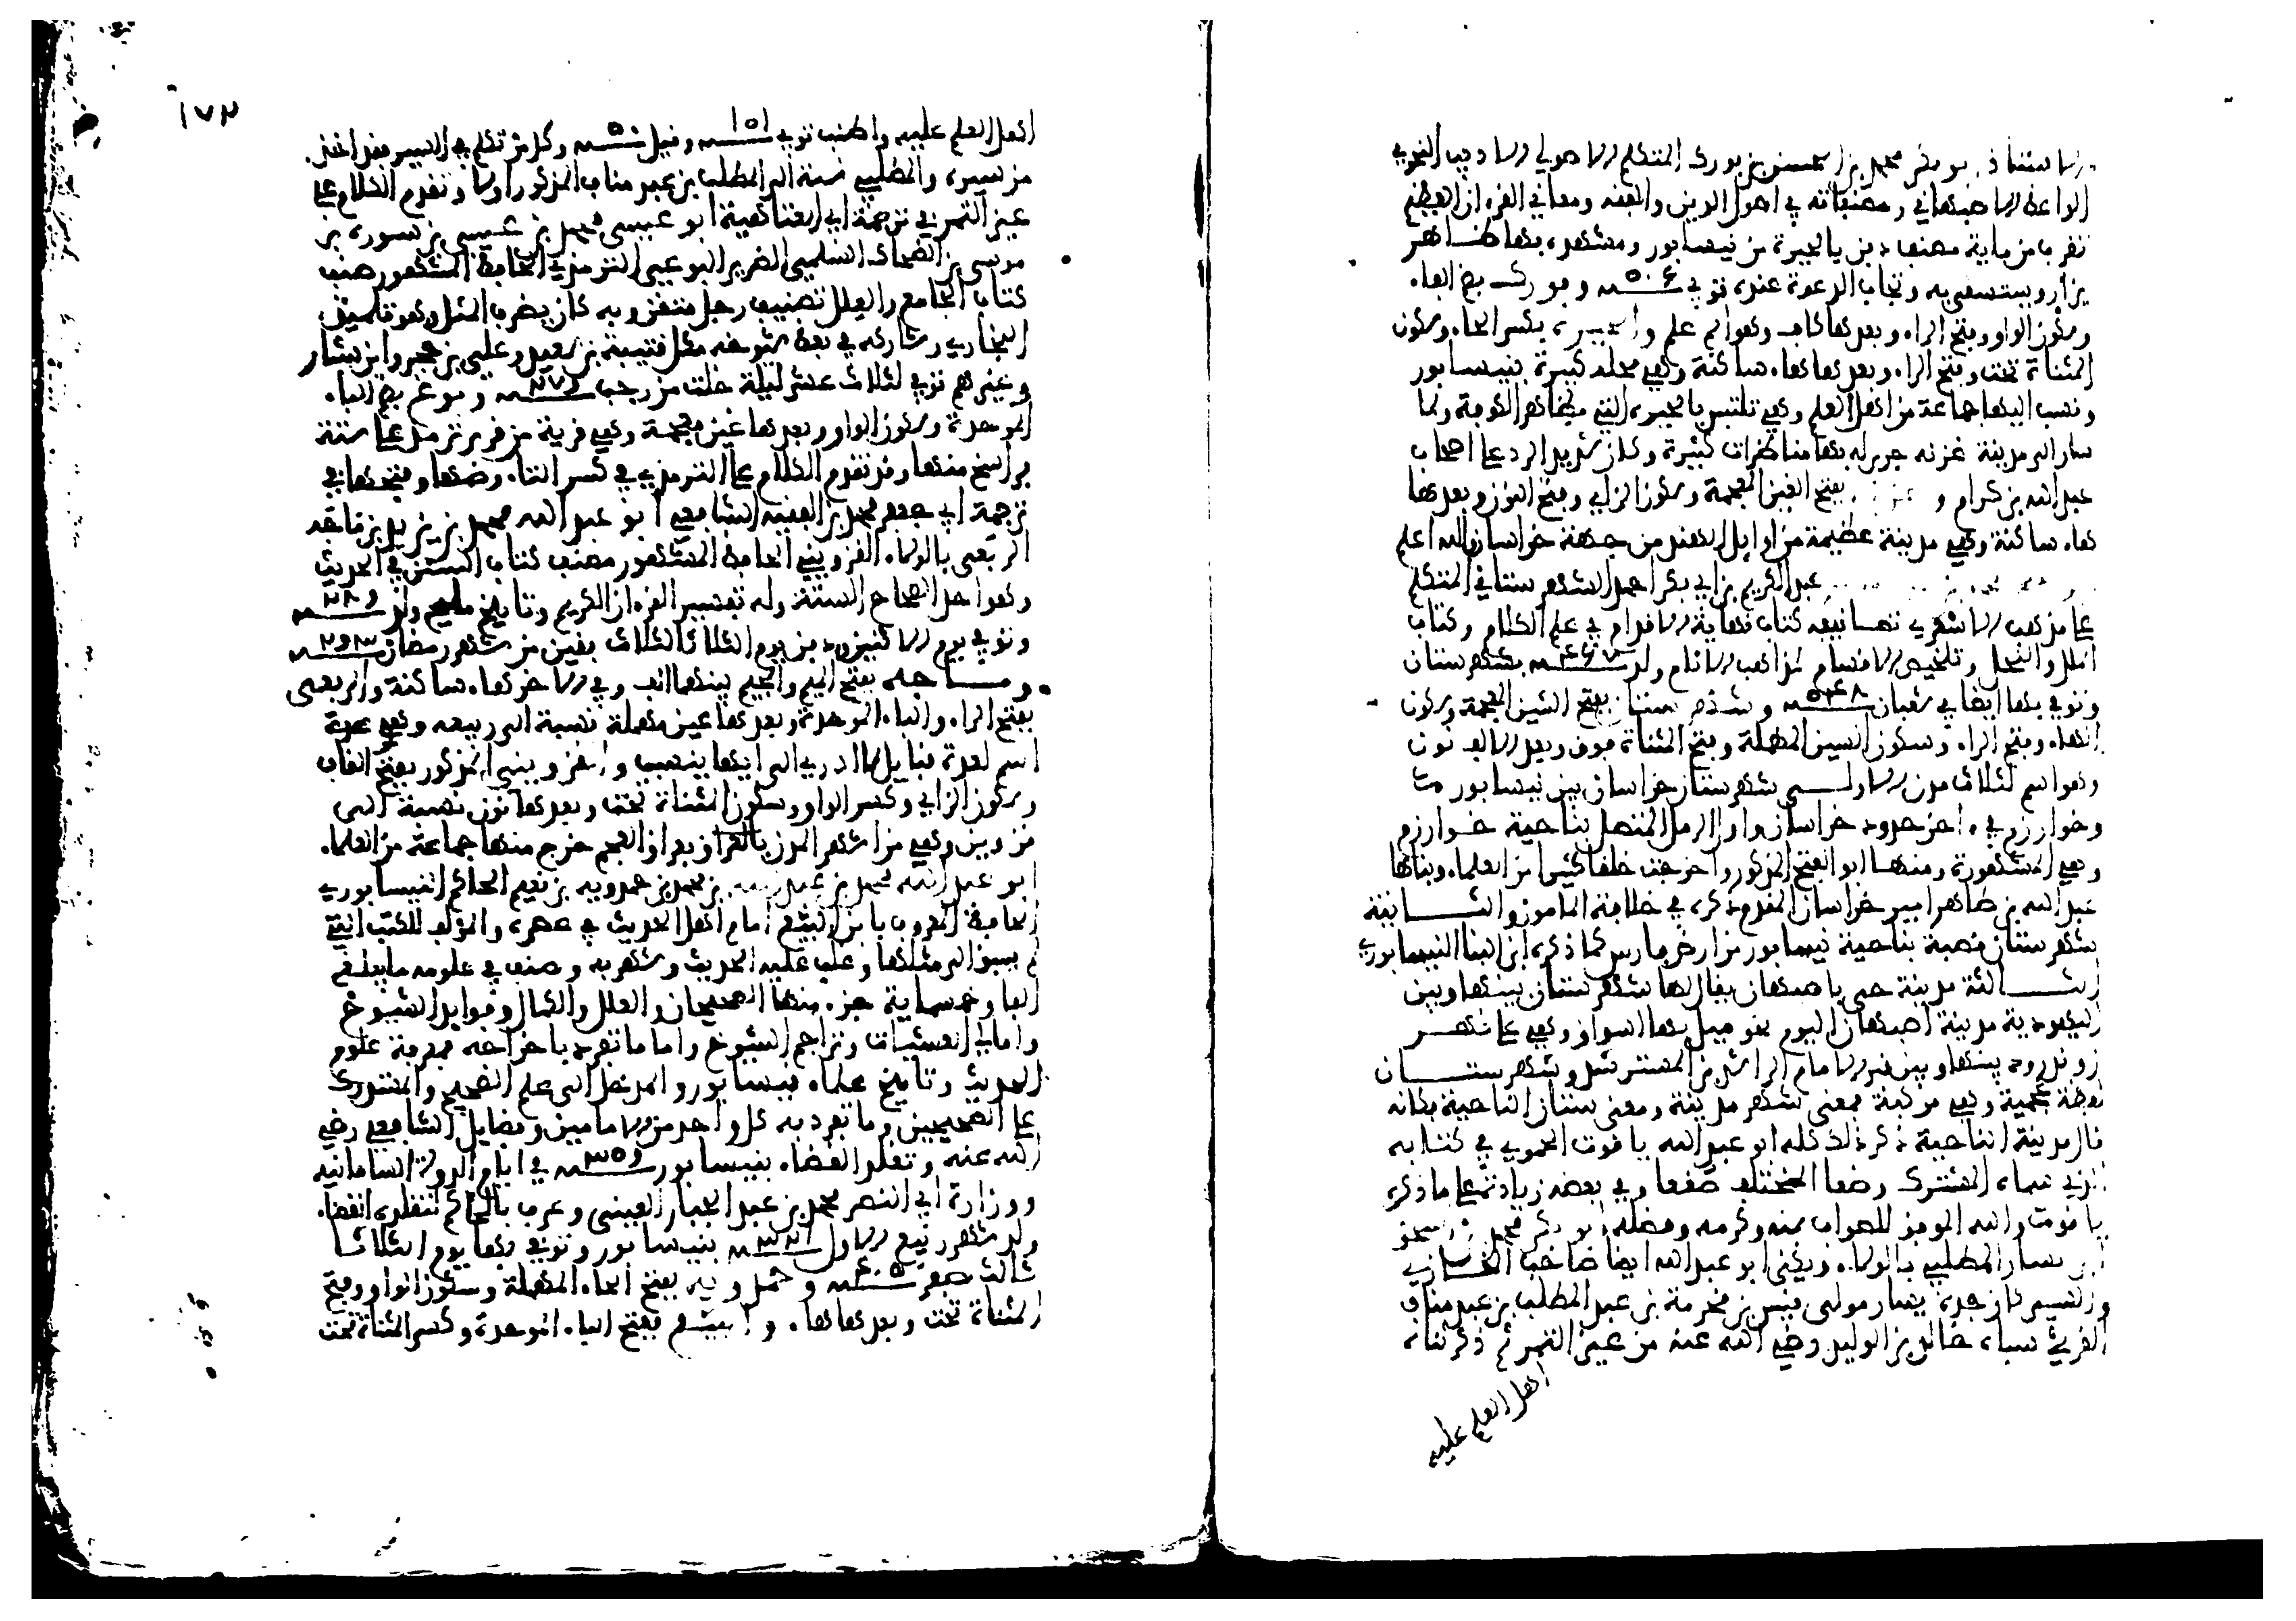 الاستاذ ابو بكر محمد بن الحسن بن فورك المتكلم الاصولي الاديب النحوي
الواعظ الاصبهاني ومصنفاته في اصول الدين والفقه ومعاني القرءان العظيم
تقرب من ماية مصنف دفن بالحيرة من نيسابور ومشهده بها ظاهر
يزار ويستسقى به وتجاب الدعوة عنده توفي سنة وفورك بضم الفاء
وسكون الواو وفتح الراء وبعدها كاف وهو اسم علم والحيرة بكسر الحاء وسكون
المثناة تحت وفتح الراء وبعدها هاء ساكنة وهي محلة كبيرة بنيسابور
ونسب اليها جماعة من اهل العلم وهي تلتبس بالحيرة التي بظاهر الكوفة ولما
سار الى مدينة غزنه جرت له بها مناظرات كثيرة وكان شديد الرد على اصحاب
عبد الله بن كرام و بفتح الغين المعجمة وسكون الزاي وفتح النون وبعدها
هاء ساكنة وهي مدينة عظيمة من اوايل الهند من جهة خراسان والله اعلم
عبد الكريم بن ابي بكر احمد الشهرستاني المتكلم
على مذهب الاشعري تصانيفه كتاب نهاية الاقدام في علم الكلام وكتاب
الملل والنحل وتلخيص الاقسام لمذاهب الانام ولد بشهرستان
وتوفي بها ايضا في شعبان ٥٤٨ وشهرستان بفتح الشين المعجمة وسكون
الهاء وفتح الراء وسكون السين المهملة وفتح المثناة فوق وبعد الالف نون
وهو اسم لثلاث مدن الاولى شهرستان خراسان بين نيسابور
وخوارزم في ءاخر حدود خراسان واول الرمل المتصل بناحية خوارزم
وهي المشهورة ومنها ابو الفتح المذكور واخرجت خلقا كثيرا من العلماء وبناها
عبد الله بن طاهر امير خراسان المقدم ذكره في خلافة المامون والثانية
شهرستان قصبة بناحية نيسابور من ارض فارس كما ذكره ابن البنا النيسابوري
الثالثة مدينة جي باصبهان يقال لها شهرستان بينها وبين
اليهودية مدينة اصبهان اليوم نحو ميل بها اسواق وهي على نهر
زونلروذ بينها وبين قبر الامام الراشد بن المسترشد وشهرستان
لفظة عجمية وهي مركبة فمعنى شهر مدينة ومعنى ستان الناحية فكانه
قال مدينة الناحية ذكر ذلك كله ابو عبد الله ياقوت الحموي في كتابه
الذي سماه المشترك وضعا المختلف صقعا وفي بعضه زيادة على ما ذكره
ياقوت والله الموفق للصواب بمنه وكرمه وفضله ابو بكر محمد بن اسحق
ابن يسار المطلبي بالولاء ويكنى ابو عبد الله ايضا صاحب المغازي
والسير كان جده يسار مولى قيس بن مخرمة بن عبد المطلب بن عبد مناف
القرشي سباه خالد بن الوليد رضي الله عنه من عين التمر ثم ذكر ثناء
اهل العلم عليه
١٧٣
اهل العلم عليه واطنب توفي سنة ١٥١ وقيل سنة ٥٠ وكل من تكلم في السير فقد اخذ
من سيره والمطلبي نسبة الى المطلب بن عبد مناف المذكور اولا وتقدم الكلام على
عين التمر في ترجمة ابي العتاهية ابو عيسى محمد بن عيسى بن سورة بن
موسى بن الضحاك السلمي الضرير البوغي الترمذي الحافظ المشهور صنف
كتاب الجامع والعلل تصنيف رجل متقن وبه كان يضرب المثل وهو تلميذ
البخاري وشاركه في بعض شيوخه مثل قتيبة بن سعيد وعلي بن حجر وابن بشار
وغيرهم توفي لثلاث عشر ليلة خلت من رجب وبوغ بضم الباء
الموحدة وسكون الواو وبعدها غين معجمة وهي قرية من قرى ترمذ على ستة
فراسخ منها وقد تقدم الكلام على الترمذي في كسر التاء وضمها وفتحها في
ترجمة ابي جعفر محمد بن الفقيه الشافعي ابو عبد الله محمد بن يزيد بن ماجه
الربعي بالولاء القزويني الحافظ المشهور مصنف كتاب السنن في الحديث
وهو احد الصحاح الستة وله تفسير القرءان الكريم وتاريخ مليح ولد
وتوفي يوم الاثنين ودفن يوم الثلاثا لثلاث بقين من شهر رمضان
وماجه بفتح الميم والجيم بينهما الف وفي الاخر هاء ساكنة والربعي
بفتح الراء والباء الموحدة وبعدها عين مهملة نسبة الى ربيعه وهي
اسم لعدة قبايل لا ادري الى ايها ينسب والقزويني المذكور بفتح القاف
وسكون الزاي وكسر الواو وسكون المثناة تحت وبعدها نون نسبة الى
قزوين وهي من اشهر المدن بالعراق عراق العجم خرج منها جماعة من العلماء
ابو عبد الله محمد بن عبد الله بن محمد بن حمدويه بن نعيم الحاكم النيسابوري
الحافظ المعروف بابن البيع امام اهل الحديث في عصره والمؤلف للكتب التي
لم يسبق الى مثلها وغلب عليه الحديث وشهر به وصنف في علومه ما يبلغ
الفا وخمسماية جزء منها الصحيحان والعلل والامال وفوايد الشيوخ
وامالي العشيات وتراجم الشيوخ واما ما تفرد باخراجه فمعرفة علوم
الحديث وتاريخ علماء نيسابور والمدخل الى علم الصحيح والمستدرك
على الصحيحين وما تفرد به كل واحد من الامامين وفضايل الشافعي رضي
الله عنه وتقلد القضاء بنيسابور في ايام الدولة السامانيه
ووزارة ابي النصر محمد بن عبد الجبار العتبي وعرف بالحاكم لتقلده القضاء
ولد شهر ربيع الاول بنيسابور وتوفي بها يوم الثلاثا
ثالث صفر ٤٠٥ وحمدويه بفتح الحاء المهملة وسكون الواو وفتح
المثناة تحت وبعدها هاء والبيع بفتح الباء الموحدة وكسر المثناة تحت